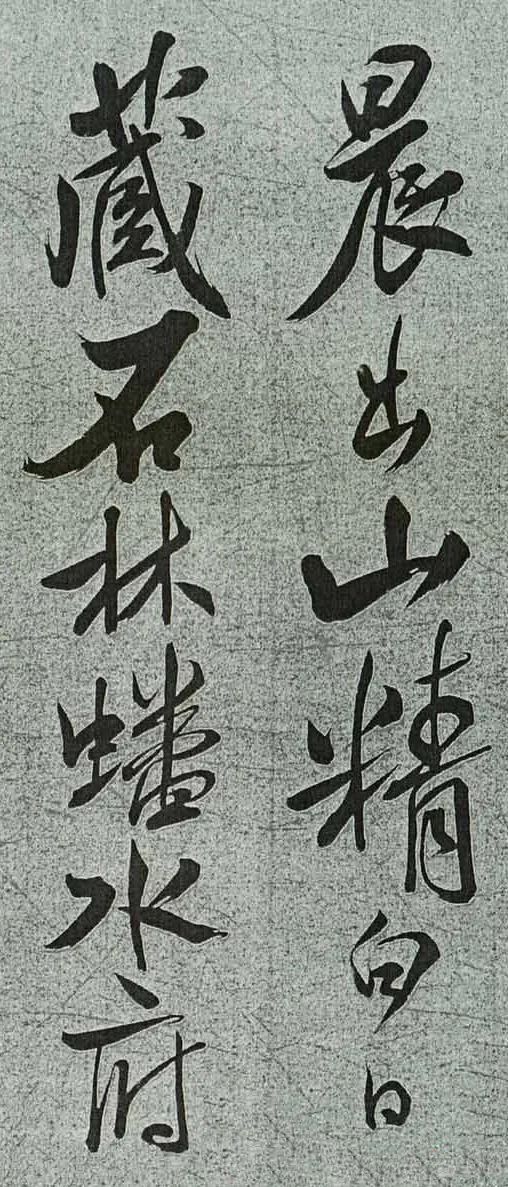 晨出山精白日
藏石林蟠水府